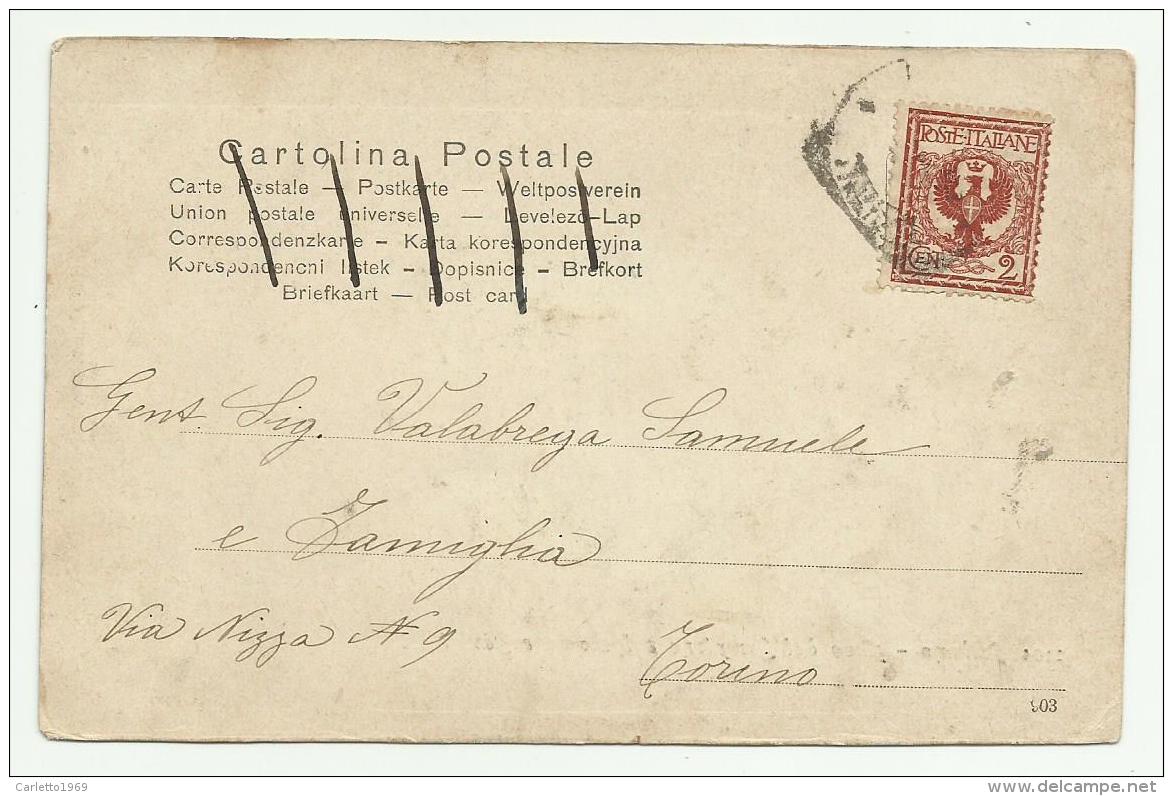 Cartolina Postale
Carte Postale — Postkarte — Weltpostverein
Union postale universelle — Levelező-Lap
Correspondenzkarte - Karta korespondencyjna
Korespondencni listek - Dopisnice - Brefkort
Briefkaart — Post card
POSTE·ITALIANE
CENT 2
Gent. Sig. Valabrega Samuele
e Famiglia
Via Nizza N 9
Torino
903
Carletto1969
delcampe.net